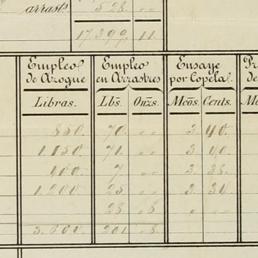 arrast.s 528 "
17.399 11
Empleo de Azogue Empleo en Arrastres Ensaye por Copela.
Libras. Lbs. Onzs. Mcos Cents.
850. 70. " 3 40.
1.150 71. " 3 40.
400. 7. " 3 38.
1.200 25 " 3 30
28. 8. " "
3.600 201 8.